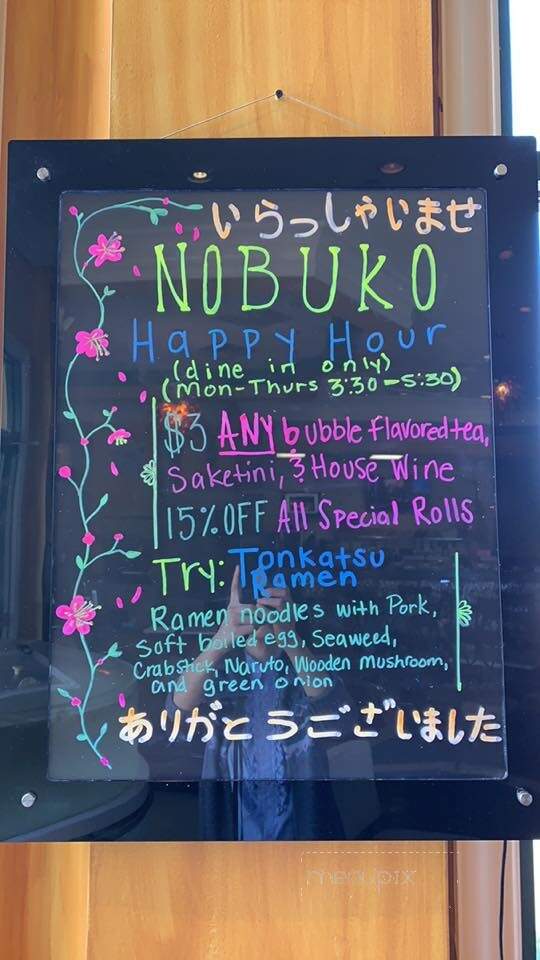 いらっしゃいませ
NOBUKO
Happy Hour
(dine in only)
(Mon-Thurs 3:30-5:30)
$3 ANY bubble flavored tea,
Saketini, & House Wine
15% OFF All Special Rolls
Try: Tonkatsu
Ramen
Ramen noodles with Pork,
Soft boiled egg, Seaweed,
Crabstick, Naruto, Wooden mushroom,
and green onion
ありがとうございました
menupix